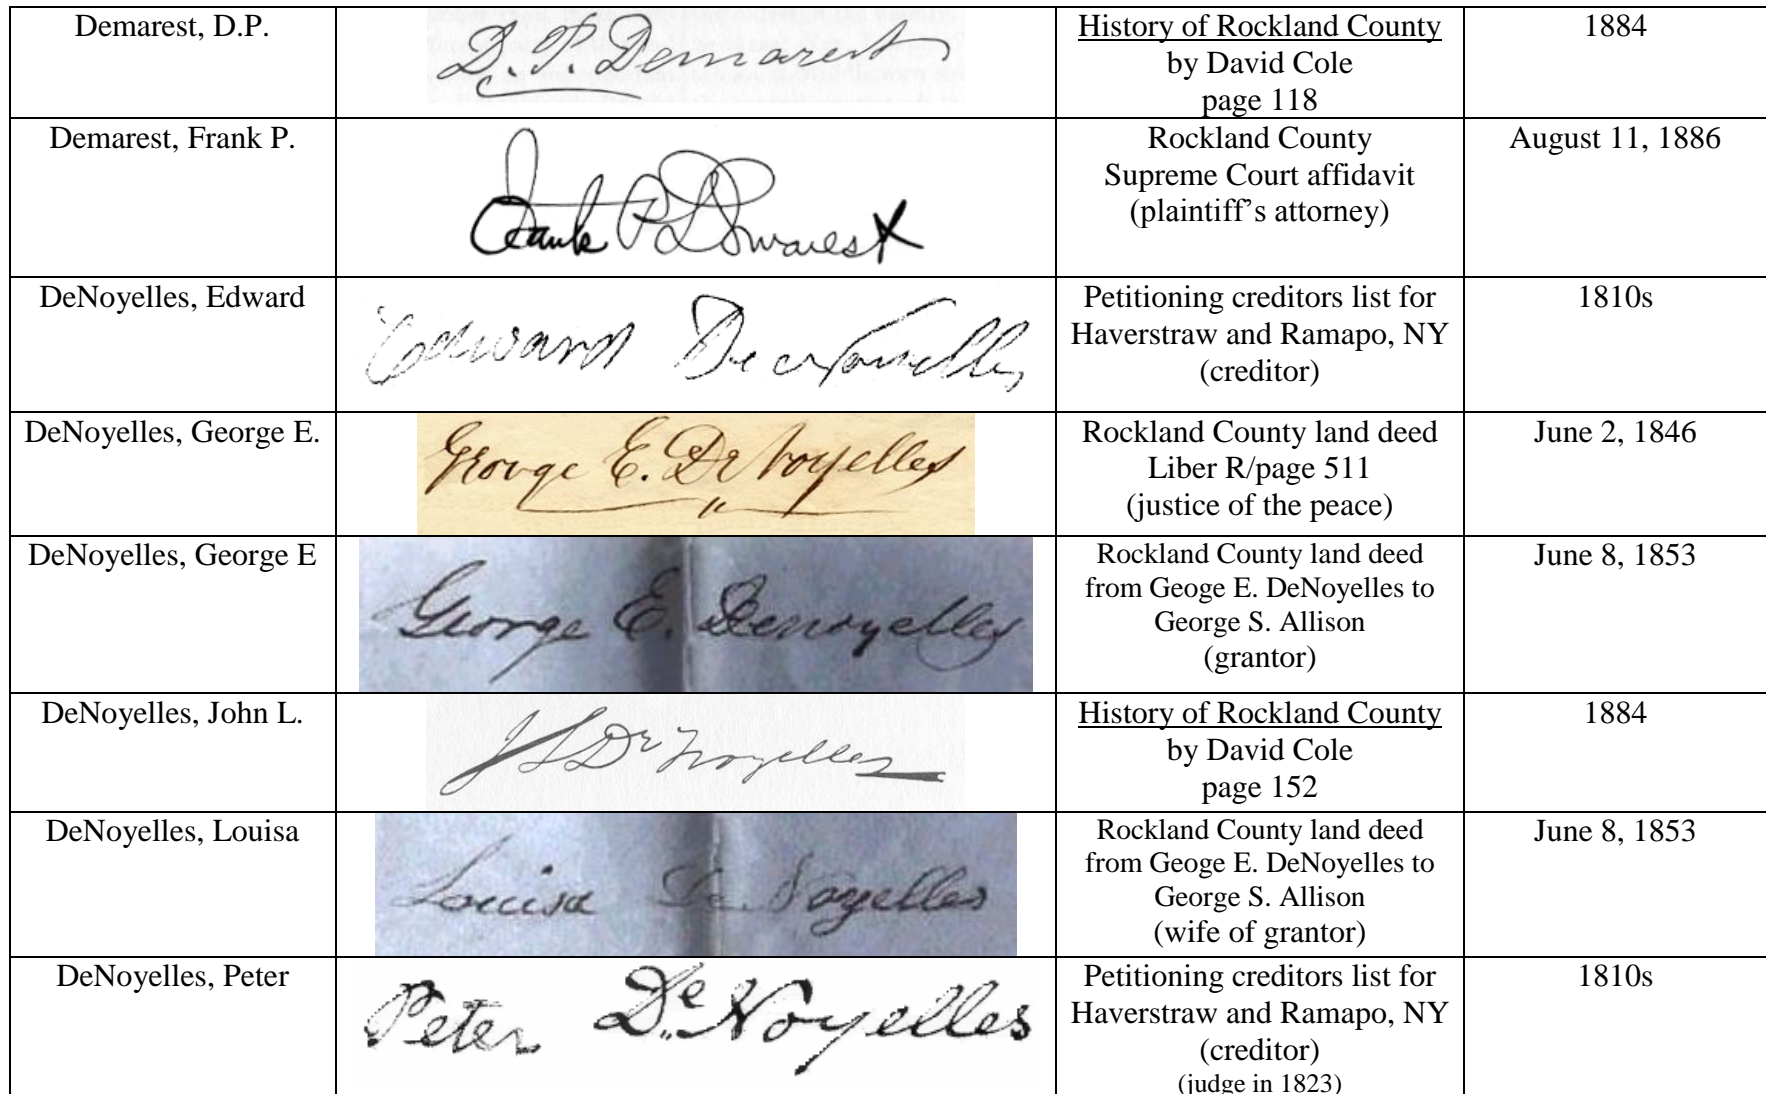 Demarest, D.P.
D. P. Demarest
History of Rockland County
by David Cole
page 118
1884
Demarest, Frank P.
Frank P. Demarest
Rockland County
Supreme Court affidavit
(plaintiff's attorney)
August 11, 1886
DeNoyelles, Edward
Edward DeNoyelles
Petitioning creditors list for
Haverstraw and Ramapo, NY
(creditor)
1810s
DeNoyelles, George E.
George E. DeNoyelles
Rockland County land deed
Liber R/page 511
(justice of the peace)
June 2, 1846
DeNoyelles, George E
George E. Denoyelles
Rockland County land deed
from Geoge E. DeNoyelles to
George S. Allison
(grantor)
June 8, 1853
DeNoyelles, John L.
J L DeNoyelles
History of Rockland County
by David Cole
page 152
1884
DeNoyelles, Louisa
Louisa DeNoyelles
Rockland County land deed
from Geoge E. DeNoyelles to
George S. Allison
(wife of grantor)
June 8, 1853
DeNoyelles, Peter
Peter DeNoyelles
Petitioning creditors list for
Haverstraw and Ramapo, NY
(creditor)
(judge in 1823)
1810s